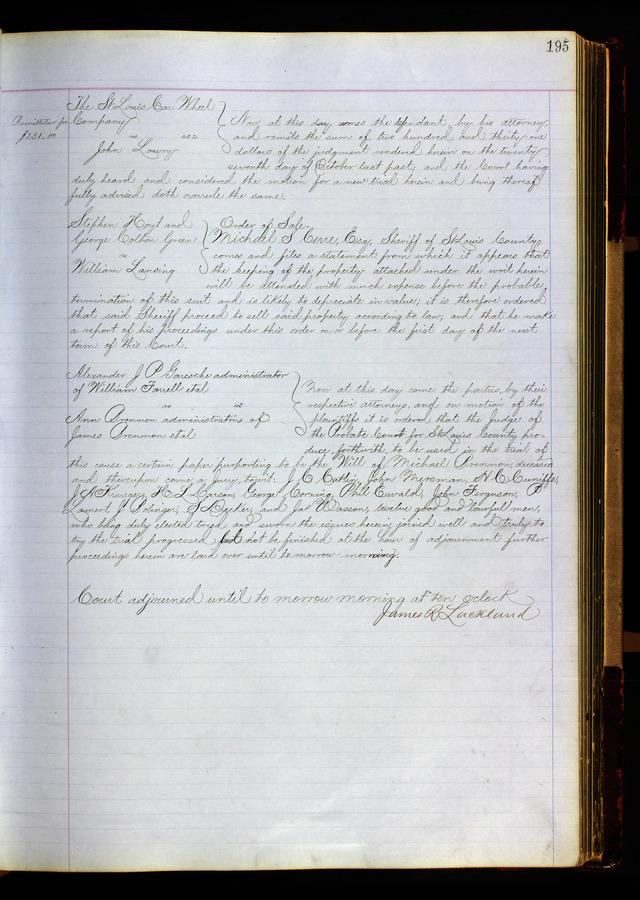 195
The St Louis Car Wheel
Company
vs
John Lowry
Remittitur for
$231.00
Now at this day comes the defendant, by his attorney,
and remits the sum of two hundred and thirty one
dollars of the judgment rendered herein on the twenty
seventh day of October last past, and the Court having
duly heard and considered the motion for a new trial herein and being thereof
fully advised doth overrule the same.
Stephen Hoyt and
George Colton Green
vs
William Lansing
Order of Sale,
Michael S Cerre, Esq, Sheriff of St Louis County,
comes and files a statement from which it appears that
the keeping of the property attached under the writ herein
will be attended with much expense before the probable
termination of this suit and is likely to depreciate in value; it is therefore ordered
that said Sheriff proceed to sell said property according to law, and that he make
a report of his proceedings under this order on or before the first day of the next
term of this Court.
Alexander J P Garesche administrator
of William Farrell etal
vs
Ann Brennon administratrix of
James Brennon etal
Now at this day come the parties, by their
respective attorneys, and on motion of the
plaintiffs it is ordered that the Judge of
the Probate Court for St Louis County pro-
duce, forthwith, to be used in the trial of
this cause a certain paper purporting to be the Will of Michael Brennon, deceased
and thereupon come a jury, towit: J C Catlin, John Mersman, H C Cuniffe,
J H Krueger, H L Carson, George Corning, Phil Ewald, John Ferguson, P
Lamert, J Bolinger, and Jas Wasson, twelve good and lawful men,
who being duly elected tried and sworn the issues herein joined well and truly to
try the trial progressed but not be finished at the hour of adjournment further
proceedings herein are laid over until to morrow morning.
Court adjourned until to morrow morning at ten oclock
James R Lackland